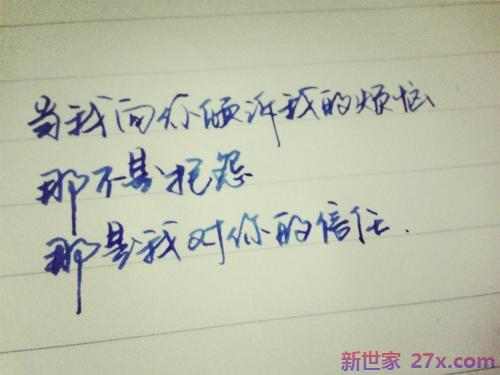 当我向你倾诉我的烦恼
那不是抱怨
那是我对你的信任.
新世家 27x.com